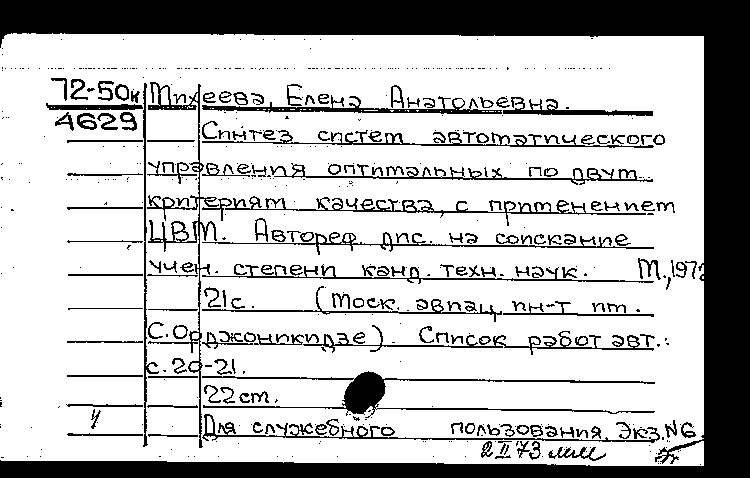 72-50к Михеева, Елена Анатольевна.
4629 Синтез систем автоматического
управления оптимальных по двум
критериям качества, с применением
ЦВМ. Автореф. дис. на соискание
учен. степени канд. техн. наук. М., 1972
21с. (Моск. авиац. ин-т им.
С.Орджоникидзе). Список работ авт.:
с. 20-21.
22 см.
Для служебного пользования. Экз.N6.
2 II 73